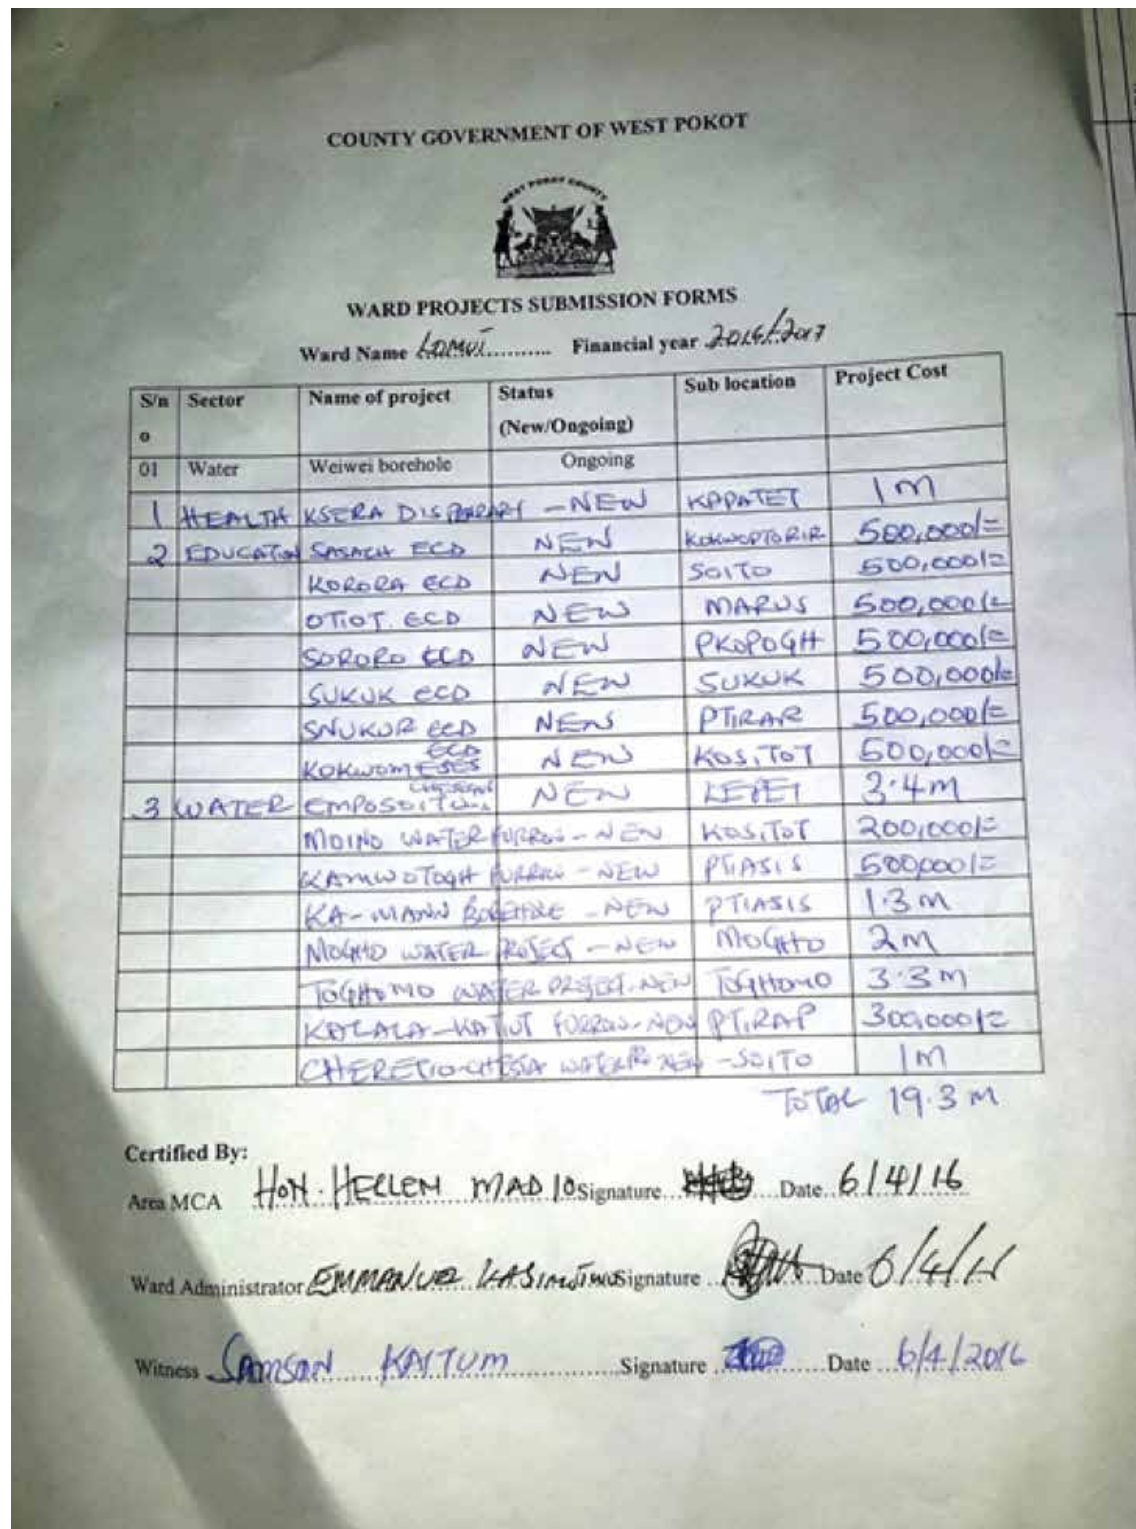 COUNTY GOVERNMENT OF WEST POKOT
WEST POKOT COUNTY
WARD PROJECTS SUBMISSION FORMS
Ward Name LOMUT.......... Financial year 2016/2017
S/n o Sector Name of project Status (New/Ongoing) Sub location Project Cost
01 Water Weiwei borehole Ongoing
1 HEALTH KSERA DISPENSARY - NEW KAPATET 1M
2 EDUCATION SASACH ECD NEW KOKWOPTORIR 500,000/=
KORORA ECD NEW SOITO 500,000/=
OTIOT ECD NEW MARUS 500,000/=
SORORO ECD NEW PKOPOGH 500,000/=
SUKUK ECD NEW SUKUK 500,000/=
SNUKUR ECD NEW PTIRAR 500,000/=
KOKWOMESES ECD NEW KOSITOT 500,000/=
3 WATER NEW 3.4M
MOINO WATER FURROW - NEW KOSITOT 200,000/=
KAMWOTOGH FURROW - NEW PTIASIS 500,000/=
KA-MANN BOREHOLE - NEW PTIASIS 1.3M
MOGHO WATER PROJECT - NEW MOGHO 2M
TOGHOMO WATER PROJECT - NEW TOGHOMO 3.3M
KALALA-KATUT FURROW - NEW PTIRAP 300,000/=
WATER NEW - SOITO 1M
TOTAL 19.3 M
Certified By:
Area MCA HON. HELLEM MADIO Signature Date 6/4/16
Ward Administrator EMMANUEL Signature Date 6/4/16
Witness SAMSON KAITUM Signature Date 6/4/2016